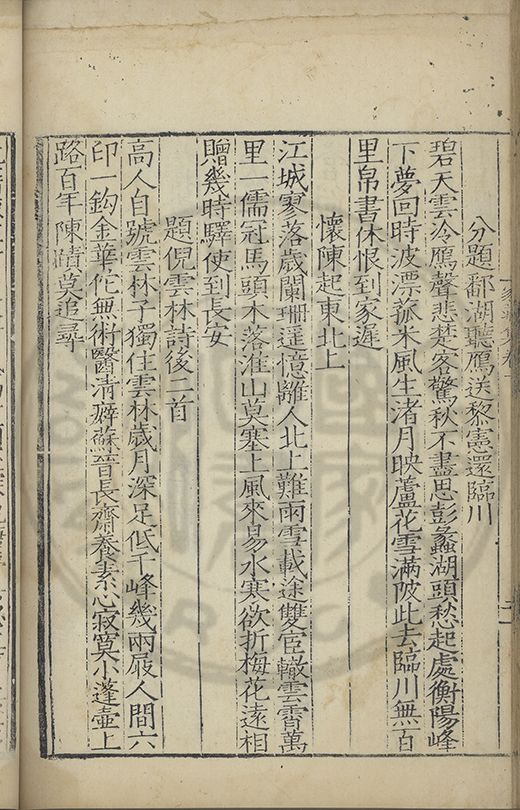 分題鄱湖聽鴈送黎憲還臨川
碧天雲冷鴈聲悲楚客驚秋不盡思彭蠡湖頭愁起處衡陽峰
下夢回時波漂菰米風生渚月映蘆花雪滿陂此去臨川無百
里帛書休恨到家遲
懷陳起東北上
江城寥落歲闌珊遥憶離人北上難雨雪載途雙宦轍雲霄萬
里一儒冠馬頭木落淮山莫塞上風來易水寒欲折梅花遠相
贈幾時驛使到長安
題倪雲林詩後二首
高人自號雲林子獨住雲林歲月深足低千峰幾兩屐人間六
印一鈎金華佗無術醫清癖蘇晉長齋養素心寂寞小蓬壷上
路百年陳蹟莫追尋